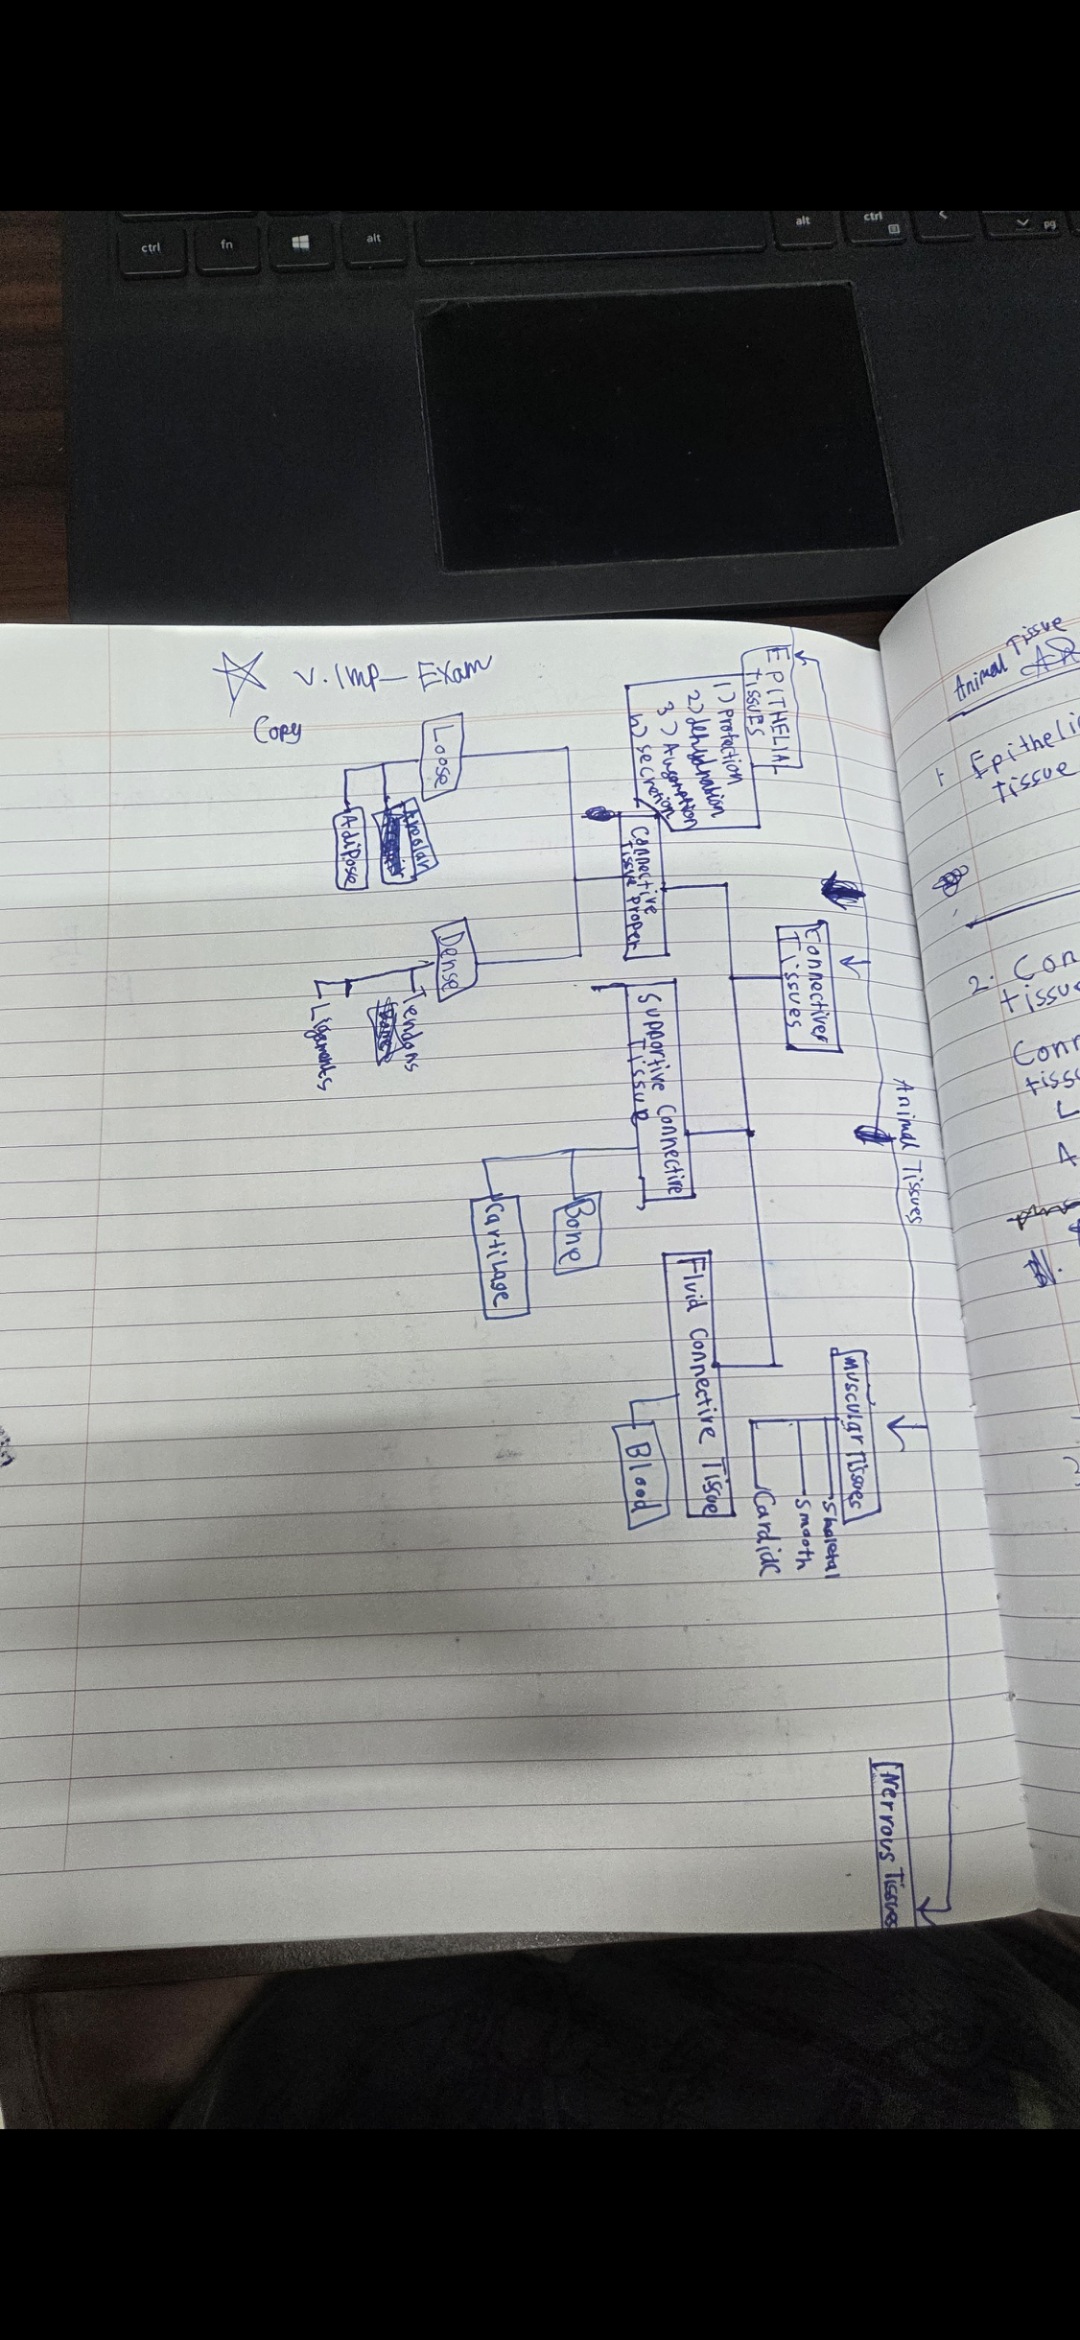 Animal Tissues
EPITHELIAL
TISSUES
1) protection
2) dehydration
3) Absorption
4) secretion
Connective
Tissues
Muscular Tissues
Skeletal
Smooth
Cardiac
Nervous Tissues
Connective
Tissue proper
Supportive Connective
Tissue
Fluid Connective Tissue
Blood
Bone
Cartilage
Loose
Areolar
Adipose
Dense
Tendons
Ligaments
V. Imp - Exam
Copy
Animal Tissue
Epitheli
tissue
2. Con
tissu
Conn
tiss
A
ctrl
fn
alt
alt
ctrl
pg